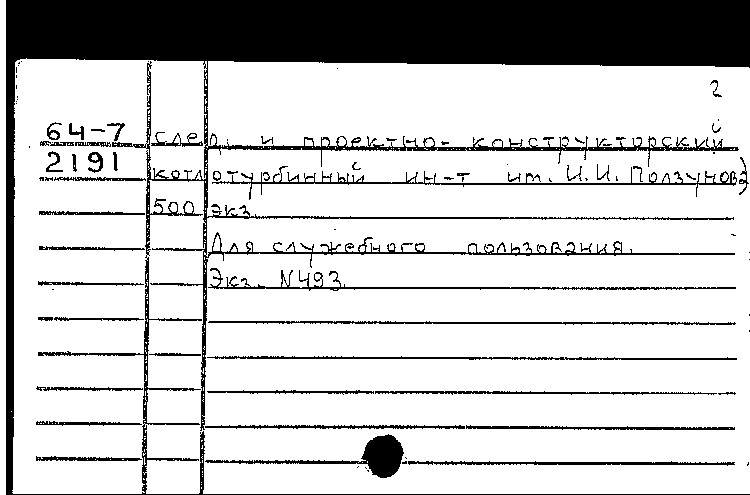 2
64-7 след. и проектно-конструкторский
2191 котлотурбинный ин-т им. И.И. Ползунова)
500 экз.
Для служебного пользования.
Экз. N493.